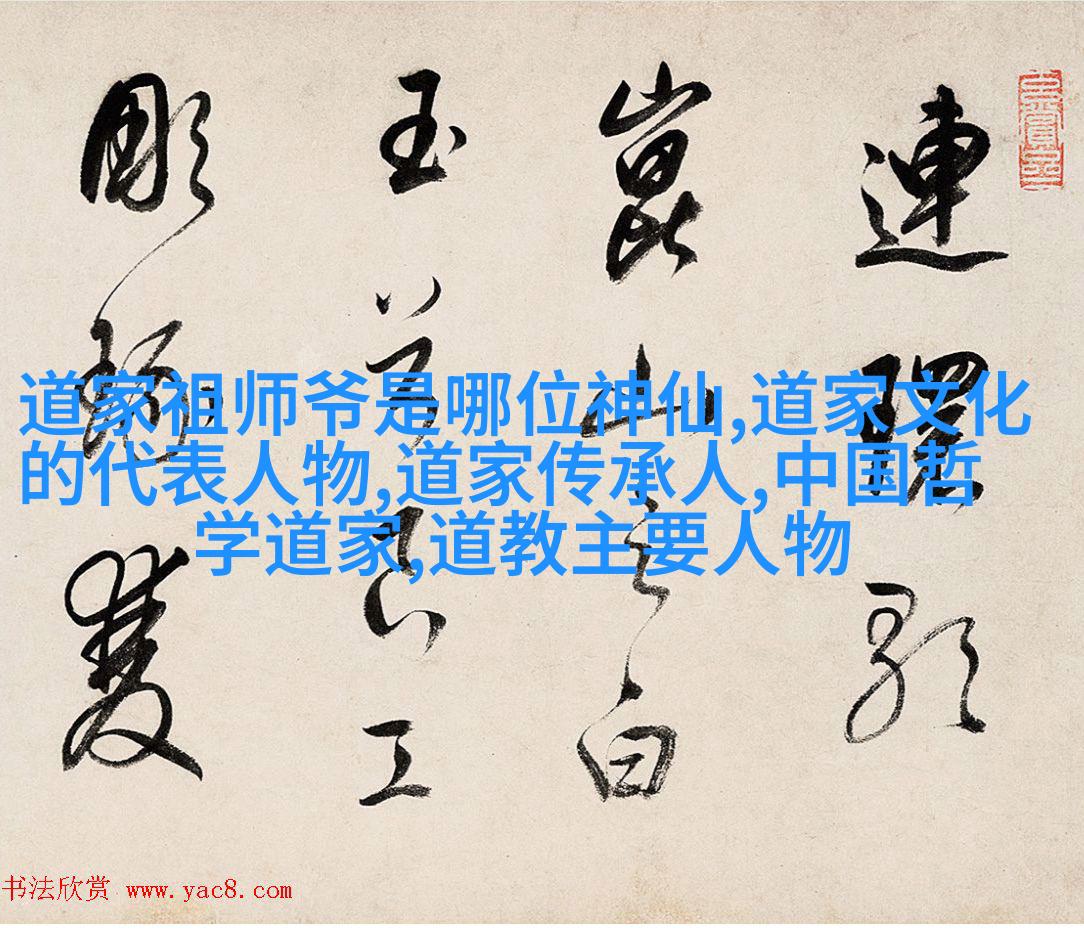 連環歌
崑山之白
玉良工
彫琢雙
道家祖师爷是哪位神仙,道家文化
的代表人物,道家传承人,中国哲
学道家,道教主要人物
书法欣赏 www.yac8.com